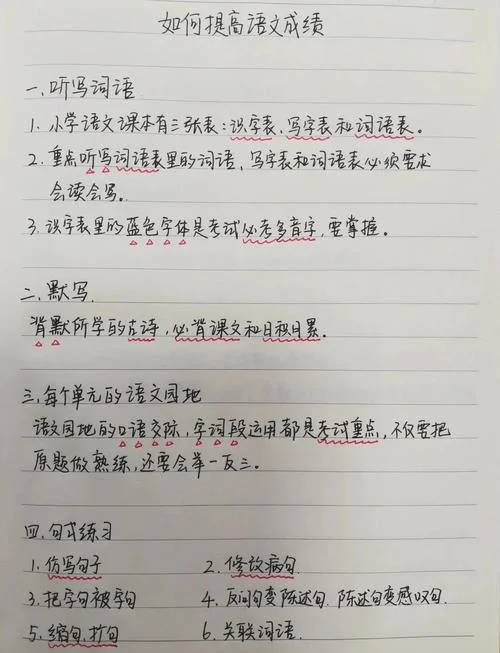 如何提高语文成绩
一、听写词语
1. 小学语文课本有三张表：识字表、写字表和词语表。
2. 重点听写词语表里的词语，写字表和词语表必须要求
会读会写。
3. 识字表里的蓝色字体是考试必考多音字，要掌握。
二、默写
背默所学的古诗，必背课文和日积月累。
三、每个单元的语文园地
语文园地的口语交际，字词段运用都是考试重点，不仅要把
原题做熟练，还要会举一反三。
四、句式练习
1. 仿写句子 2. 修改病句
3. 把字句被字句 4. 反问句变陈述句．陈述句变感叹句．
5. 缩句，扩句 6. 关联词语．